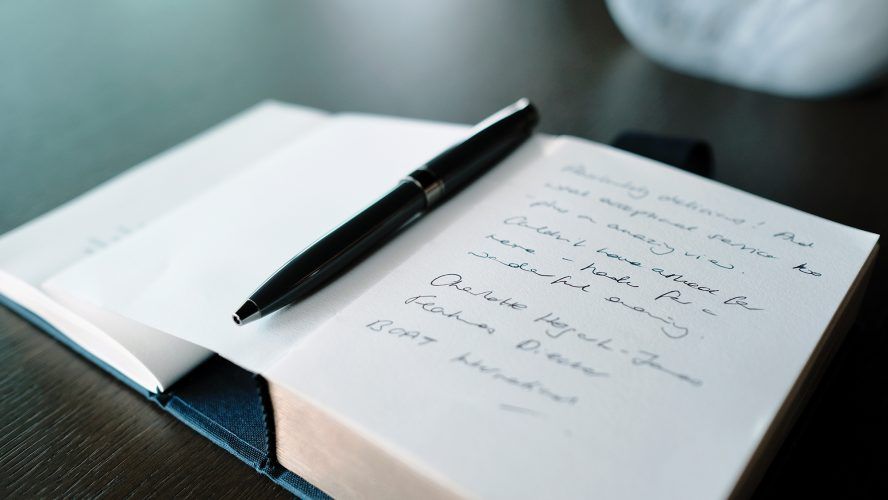 Absolutely delicious! And
what exceptional service too
- plus an amazing view.
Couldn't have asked for
more - made for a
wonderful evening.
Charlotte
Features Director
BOAT International